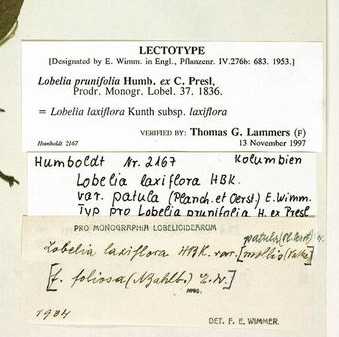 LECTOTYPE
[Designated by E. Wimm. in Engl., Pflanzenr. IV.276b: 683. 1953.]
Lobelia prunifolia Humb. ex C. Presl,
Prodr. Monogr. Lobel. 37. 1836.
= Lobelia laxiflora Kunth subsp. laxiflora
VERIFIED BY: Thomas G. Lammers (F)
Humboldt 2167 13 November 1997
Humboldt Nr. 2167 Kolumbien
Lobelia laxiflora HBK.
var. patula (Planch. et Oerst.) E. Wimm.
Typ pro Lobelia prunifolia H. ex Presl
PRO MONOGRAPHIA LOBELIOIDEARUM
Lobelia laxiflora HBK. var. [mollis
[f. foliosa (M. E. W.]
1934 DET. F. E. WIMMER.